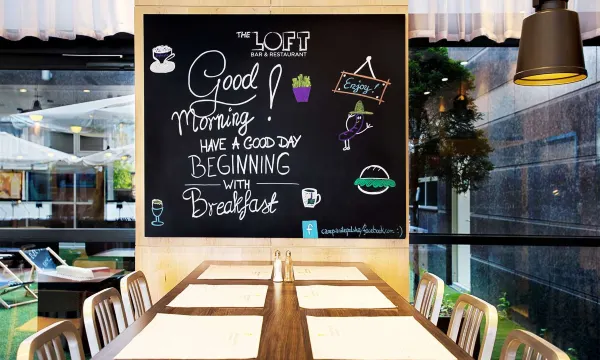 THE LOFT
BAR & RESTAURANT
Good
Morning!
Enjoy!
HAVE A GOOD DAY
BEGINNING
WITH
Breakfast
f